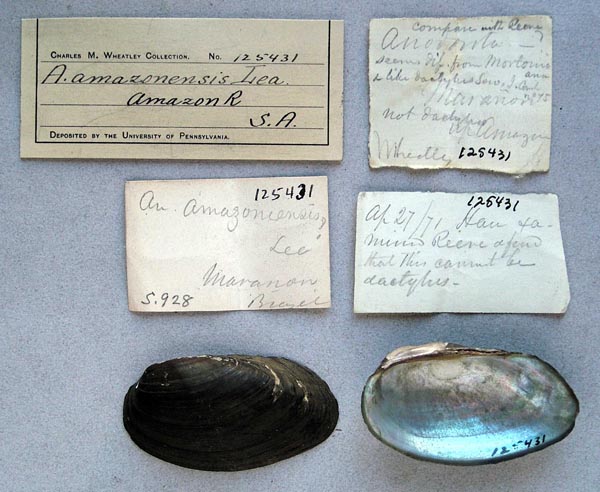 CHARLES M. WHEATLEY COLLECTION. No. 125431
A. amazonensis Lea.
Amazon R
S.A.
DEPOSITED BY THE UNIVERSITY OF PENNSYLVANIA.
compare with Reeve
Anodonta
seems from Mortonia
like dactylus Sow.
Maranon
not dactylus
Amazon
Wheatley 125431
125431
An. amazoniensis,
Lea
Maranon
S.928 Brazil
125431
Ap 27/71 Have exa-
mined Reeve & find
that this cannot be
dactylus-
125431